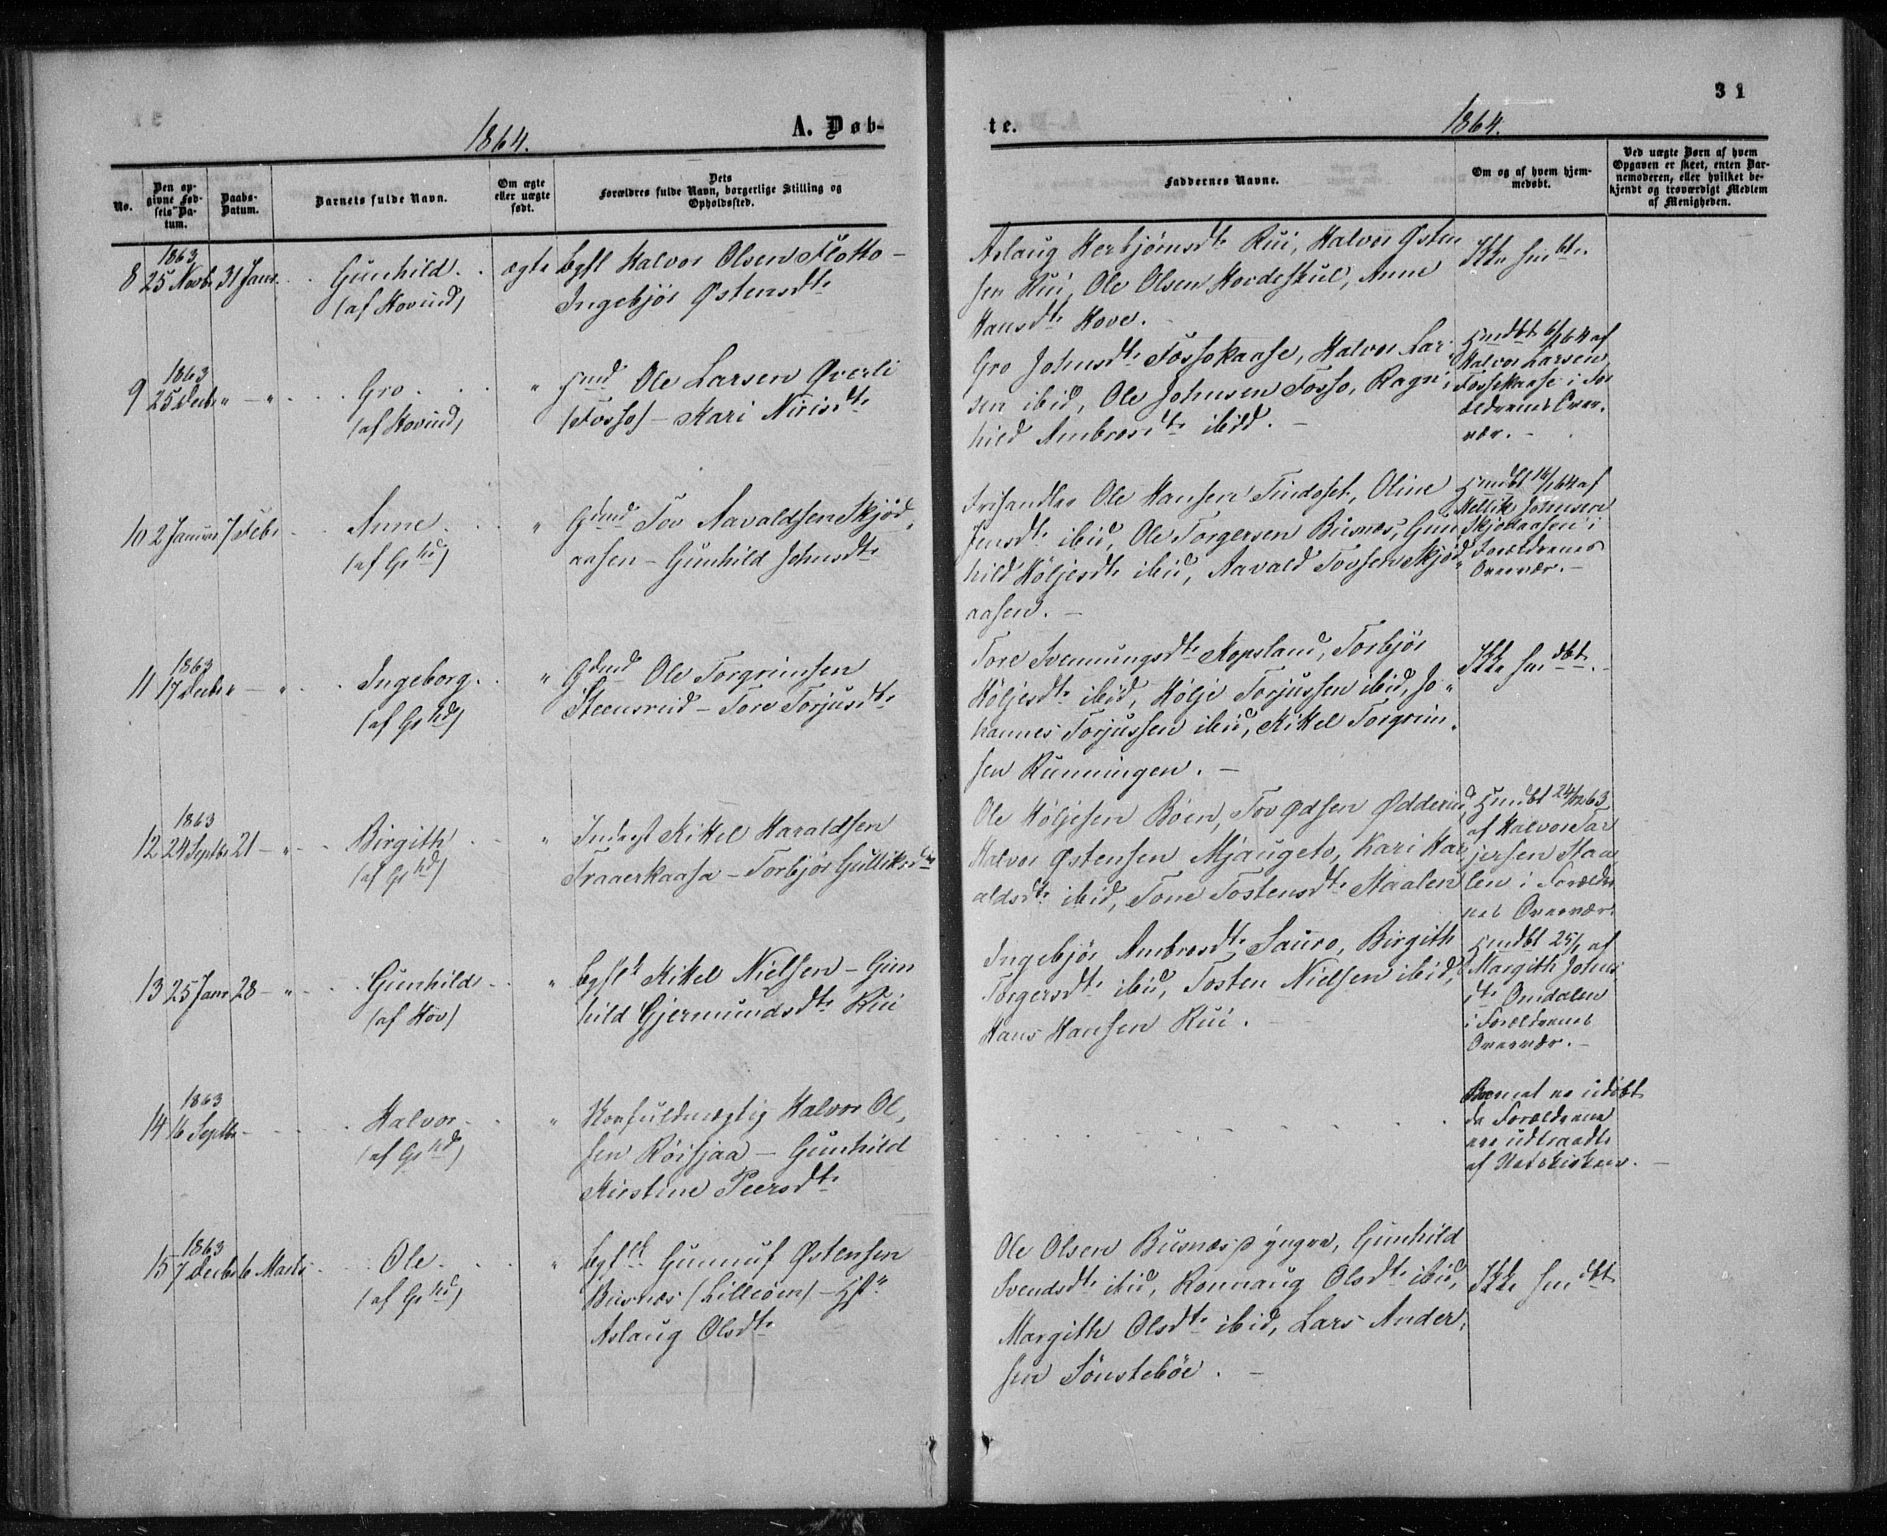 31
1864.
A. Døb-
te.
1864.
No.
Den op-
givne Fød-
sels Da-
tum.
Daabs-
Datum.
Barnets fulde Navn.
Om ægte
eller uægte
født.
Dets
Forældres fulde Navn, borgerlige Stilling og
Opholdssted.
Faddernes Navne.
Om og af hvem hjem-
medøbt.
Ved uægte Børn af hvem
Opgaven er skeet, enten Bar-
nemoderen, eller hvilket be-
kjendt og troværdigt Medlem
af Menigheden.
1863
8 25 Novbr 31 Janr. Gunhild. ægte Halvor Olsen
(af Hovind) Ingebjør Østensdtr
Aslaug Herbjørnsdtr Rui, Halvor Østen
sen Rui, Ole Olsen Hordeskul, Anne
Hansdtr Hove.
Ikke hmdbt.
1863
9 25 Decbr " — " Gro. " Ole Larsen Qverli
(af Hovind) (Fosso) – Kari Nirisdtr
Gro Johnsdtr Fossekaase, Halvor Lar-
sen ibid, Ole Johnsen Fosso, Ragn-
hild Ambrosdtr ibid. —
Hmdbt 6/1 64 af
Halvor Larsen
Fossekaase i For
ældrenes Over-
vær. —
10 2 Januar 7 Febr. Anne. " Gdmd Tov Aavaldsen Skjød-
(af Grhd) aasen – Gunhild Johnsdtr
Ole Hansen Tindoset, Oline
Jensdtr ibid, Ole Torgersen Busnæs, Gun
hild Høljesdtr ibid, Aavald Tovsen Skjød-
aasen. —
Hmdbt 16/1 64 af
Kettik Johnsen
i
Forældrenes
Overvær. —
1863
11 17 Decbr " — " Ingeborg. " Gdmd Ole Torgrimsen
(af Grhd) Steensrud – Tore Torjusdtr
Tore Svennungsdtr Kopsland, Torbjør
Høljesdtr ibid, Hølje Torjussen ibid, Jo-
hannes Torjussen ibid, Kikel Torgrim-
sen Runningen. —
Ikke hmdbt.
1863
12 24 Septbr 21 — " — Birgith " Inderst Kikel Haraldsen
(af Grhd) Traaerkaasa – Torbjør Gulliksdtr
Ole Høljesen Bøen, Tov Odsen Odderud,
Halvor Østensen Mjaugeto, Kari Har
aldsdtr ibid, Tone Tostensdtr Staalen
Hmdbt 24/12 63
af Halvor Tar
jersen Staa
len i Forældre
nes Overvær.
13 25 Janr 28 — " — Gunhild " Kikel Nielsen – Gun
(af Hov) hild Gjermundsdtr Rui
Ingebjør Ambrosdtr Sauro, Birgith
Torgersdtr ibid, Tosten Nielsen ibid,
Hans Hansen Rui. —
Hmdbt 25/1 af
Margith Johns-
dtr Omdalen
i Forældrenes
Overvær. —
1863
14 16 Septbr — Halvor. " Halvor Ol-
(af Grhd) sen Roisjaa – Gunhild
Kirstine Peersdtr
Barnet er udøbt
da Forældrene
ere udtraadte
af Statskirken. —
1863
15 7 Decbr 6 Marts Ole. " Gunnuf Østensen
(af Grhd) Busnæs (Lilleøen) – Hstr
Aslaug Olsdtr
Ole Olsen Busnæs yngre, Gunhild
Svendsdtr ibid, Ronnaug Olsdtr ibid,
Margith Olsdtr ibid, Lars Ander-
sen Sønstebøe. —
Ikke hmdbt